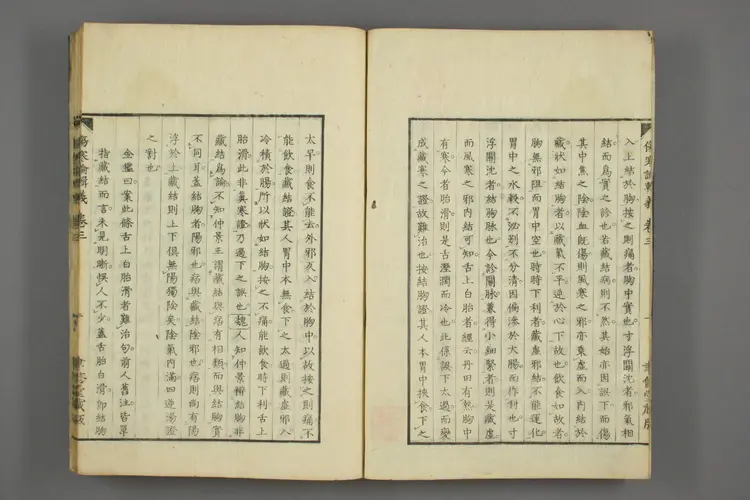 入上結於胸按之則痛者胸中實也寸浮關沈者邪氣相
結而爲實之診也若藏結病則不然其始亦因誤下而傷
其中焦之陰陰血既傷則風寒之邪亦乘虛而入內結於
藏狀如結胸者以藏氣不平逆於心下故也飲食如故者
胸無邪阻而胃中空也時時下利者藏虛邪結不能運化
胃中之水穀不泌別不分清因偏滲於大腸而作利也寸
浮關沈者結胸脉也今診關脉兼得小細緊者則是藏虛
而風寒之邪內結可知舌上白胎者經云丹田有熱胸中
有寒今者胎滑則是舌溼潤而冷也此係誤下太過而變
成藏寒之證故難治也按結胸證其人本胃中挾食下之
傷寒論輯義 卷三
太早則食不能去外邪反入結於胸中以故按之則痛不
能飲食藏結證其人胃中本無食下之太過則藏虛邪入
冷積於腸所以狀如結胸按之不痛能飲食時下利舌上
胎滑此非眞寒證乃過下之誤也魏人知仲景辨結胸非
藏結爲論不知仲景正謂藏結與痞有相類而與結胸實
不同耳蓋結胸者陽邪也痞與藏結陰邪也痞則尚有陽
浮於上藏結則上下俱無陽獨陰矣陰氣內滿四逆湯證
之對也
金鑑曰案此條舌上白胎滑者難治句前人舊注皆單
指藏結而言未見明晰悞人不少蓋舌胎白滑卽結胸
傷寒論輯義 卷三